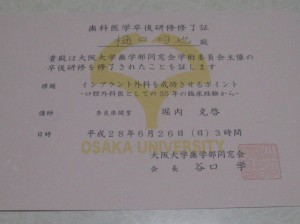 歯科医学卒後研修修了証
樋口 殿
貴殿は大阪大学歯学部同窓会学術委員会主催の
卒後研修を修了されたことを証します
演題 インプラント外科を成功させるポイント
-口腔外科医としての35年の臨床経験から-
講師 奈良県開業 堀内 克啓
日時 平成28年6月26日(日)3時間
OSAKA UNIVERSITY
大阪大学歯学部同窓会
会長 谷口 学